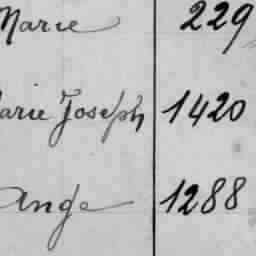 Marie 229
Marie Joseph 1420
Ange 1288